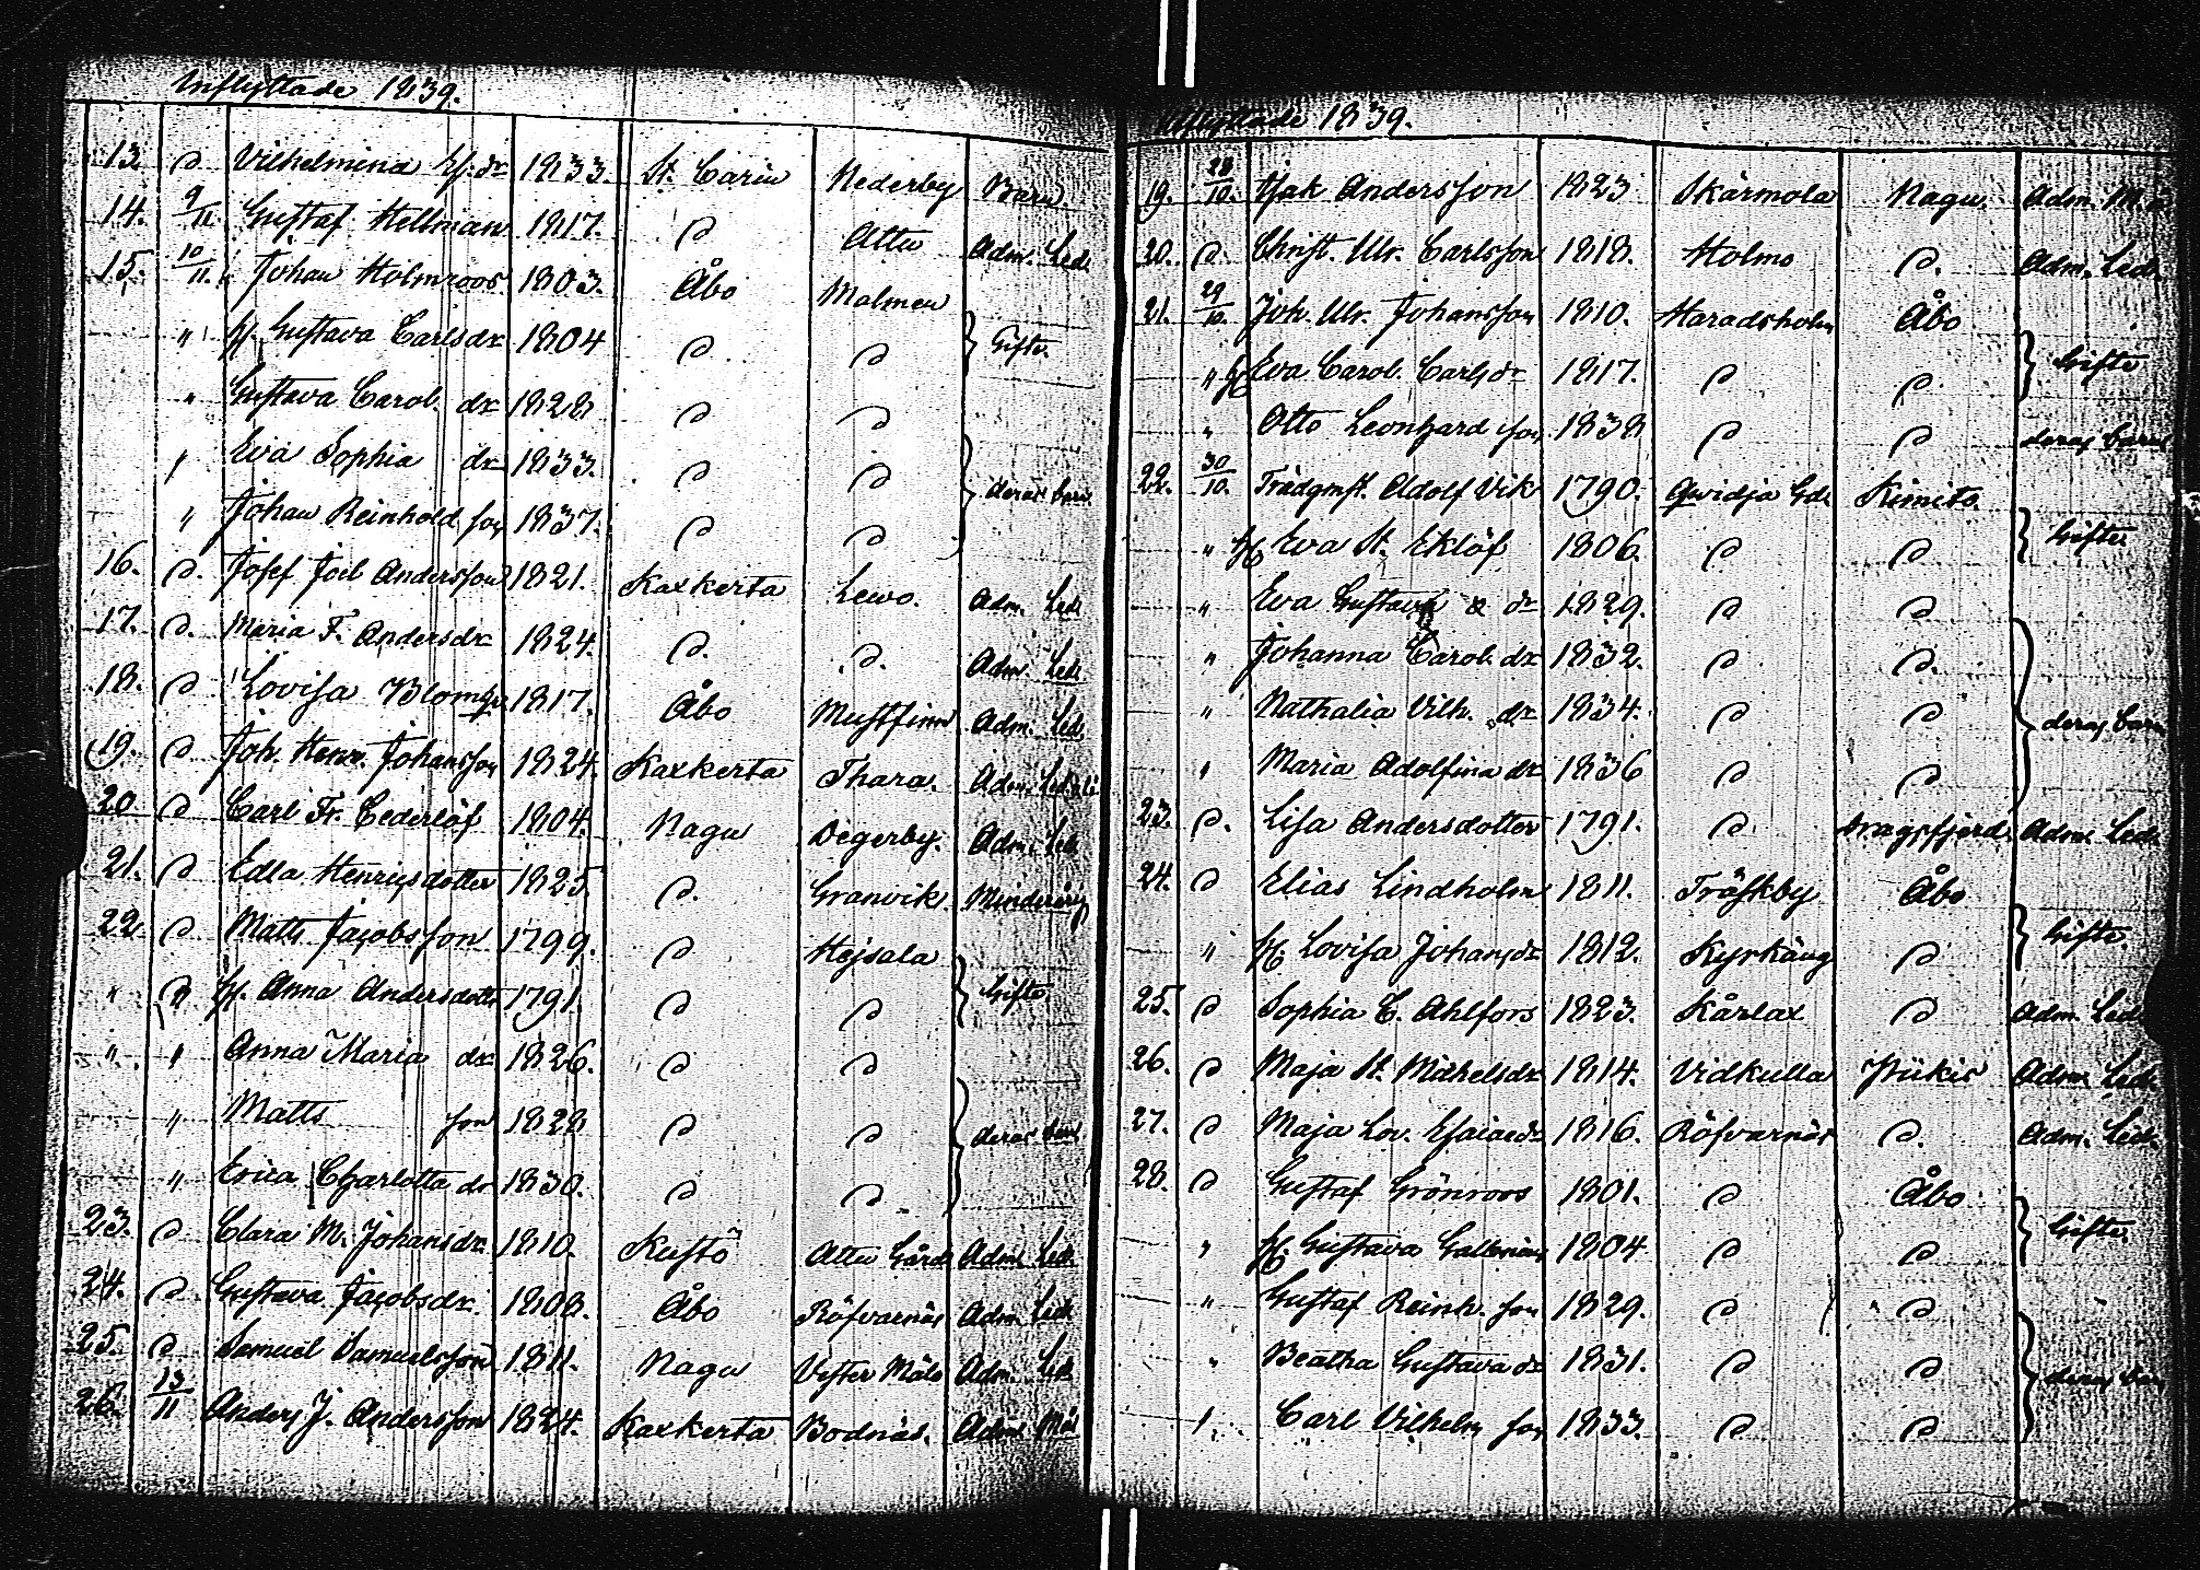 Inflyttade 1839.
13. D. Vilhelmina hf. dr 1833. St. Carin Nederby Barn.
14. 9/11 Gustaf Hellman 1817. D Attu Adm. Led.
15. 10/11. Johan Holmroos 1803. Åbo Malmen
" h. Gustava Carlsdr 1804 D D } Gifte.
" Gustava Carol. dr 1828 D D
" Eva Sophia dr 1833. D D } deras barn.
" Johan Reinhold son 1837. D D
16. D. Josef Joel Andersson 1821. Kaxkerta Lewo. Adm. Led.
17. D. Maria F. Andersdr 1824. D. D. Adm. Led.
18. D Lovisa Blomqv 1817. Åbo Mustfinn Adm. Led.
19. D Joh. Henr. Johansson 1824. Kaxkerta Thara. Adm. Led.
20 D Carl Fr. Cederlöf 1804. Nagu Degerby. Adm. Led.
21. D Edla Henricsdotter 1825. D. Granvik. Minderårig
22. D Matts Jacobsson 1799. D Hejsala
" D h. Anna Andersdotter 1791. D D } Gifte
" " Anna Maria dr 1826. D D
" Matts son 1828 D D } deras barn
" Erica Charlotta dr 1830. D D
23. D Clara M. Johansdr. 1810. Kustö Attu Gård Adm. Led.
24. D Gustava Jacobsdr. 1808. Åbo Röfvarnäs Adm. Led.
25. D Samuel Samuelsson 1811. Nagu Vester Målo Adm. Led.
26. 13/11 Anders J. Andersson 1824. Kaxkerta Bodnäs. Adm.
Utflyttade 1839.
19. 28/10. Isak Andersson 1823 Skärmola Nagu. Adm.
20. D. Christ. Ulr. Carlsson 1818. Holmo D. Adm. Led.
21. 29/10. Joh. Ulr. Johansson 1810. Haradsholm Åbo
" h Eva Carol. Carlsdr 1817. D D. } Gifte
" Otto Leonhard son 1838 D D deras barn
22. 30/10. Trädgmst. Adolf Vik 1790. Qvidja Gd. Kimito.
" h Eva St. Eklöf 1806. D D } Gifte.
" Eva Gustava dr 1829. D D
" Johanna Carol. dr 1832. D D.
" Nathalia Vilh. dr 1834. D D } deras barn
" Maria Adolfina dr 1836 D D
23. D. Lisa Andersdotter 1791. D Dragsfjerd. Adm. Led.
24. D Elias Lindholm 1811. Träskby Åbo
" h Lovisa Johansdr 1812. Kyrkäng D } Gifte
25. D Sophia C. Ahlfors 1823. Kårlax D Adm. Led.
26. D Maja St. Mickelsdr 1814. Vidkulla Piikis Adm. Led.
27. D Maja Lov. Esaiaedr 1816. Röfvarnäs D. Adm. Led.
28. D Gustaf Grönroos 1801. D Åbo
" h. Gustava 1804 D D } Gifte.
" Gustaf Reinh. son 1829. D D
" Beatha Gustava dr 1831. D D } deras barn
" Carl Vilhelm son 1833. D D